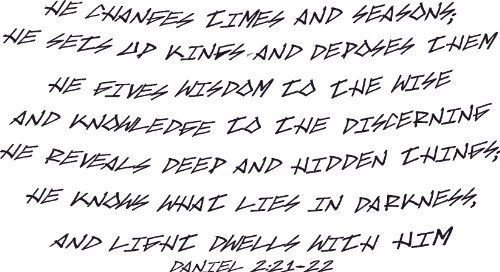 HE CHANGES TIMES AND SEASONS;
HE SETS UP KINGS AND DEPOSES THEM
HE GIVES WISDOM TO THE WISE
AND KNOWLEDGE TO THE DISCERNING
HE REVEALS DEEP AND HIDDEN THINGS;
HE KNOWS WHAT LIES IN DARKNESS,
AND LIGHT DWELLS WITH HIM
DANIEL 2:21-22